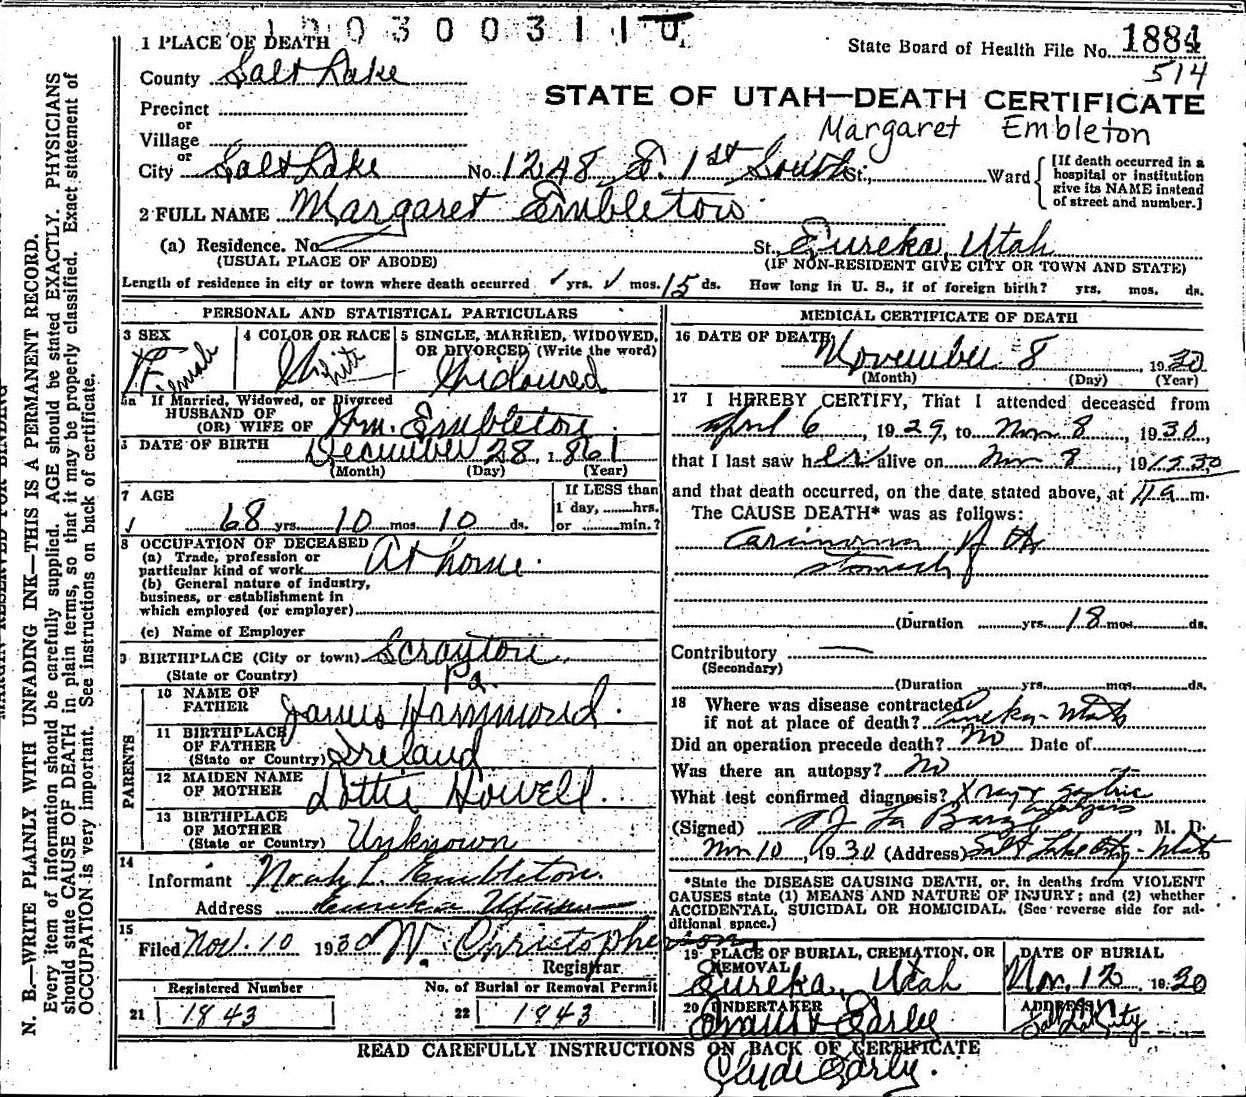 1003003110
1 PLACE OF DEATH
State Board of Health File No. 1884
514
County Salt Lake
STATE OF UTAH—DEATH CERTIFICATE
Precinct
Margaret Embleton
or
Village
or
City Salt Lake No. 1248 E. 1st South St., Ward
[If death occurred in a hospital or institution give its NAME instead of street and number.]
2 FULL NAME Margaret Embleton
(a) Residence. No. St., Eureka, Utah
(USUAL PLACE OF ABODE) (IF NON-RESIDENT GIVE CITY OR TOWN AND STATE)
Length of residence in city or town where death occurred yrs. mos. 15 ds. How long in U. S., if of foreign birth? yrs. mos. ds.
PERSONAL AND STATISTICAL PARTICULARS
3 SEX Female
4 COLOR OR RACE White
5 SINGLE, MARRIED, WIDOWED, OR DIVORCED (Write the word) Widowed
5a If Married, Widowed, or Divorced
HUSBAND OF
(OR) WIFE OF Wm. Embleton
DATE OF BIRTH December 28, 1861
(Month) (Day) (Year)
7 AGE
68 yrs. 10 mos. 10 ds.
If LESS than
1 day, hrs.
or min.?
8 OCCUPATION OF DECEASED
(a) Trade, profession or
particular kind of work At home.
(b) General nature of industry,
business, or establishment in
which employed (or employer)
(c) Name of Employer
9 BIRTHPLACE (City or town) Scrayton
(State or Country) Pa.
PARENTS
10 NAME OF
FATHER James Hammond.
11 BIRTHPLACE
OF FATHER
(State or Country) Ireland
12 MAIDEN NAME
OF MOTHER Lottie Howell.
13 BIRTHPLACE
OF MOTHER
(State or Country) Unknown
14
Informant Noah L. Embleton.
Address Eureka
15
Filed Nov. 10 1930 W. Christopherson
Registrar
Registered Number No. of Burial or Removal Permit
21 1843 22 1843
MEDICAL CERTIFICATE OF DEATH
16 DATE OF DEATH November 8, 1930
(Month) (Day) (Year)
17 I HEREBY CERTIFY, That I attended deceased from
April 6, 1929, to Nov 8, 1930,
that I last saw her alive on Nov 8, 19 1930
and that death occurred, on the date stated above, at m.
The CAUSE DEATH* was as follows:
Carcinoma of the
stomach
(Duration yrs. 18 mos. ds.
Contributory
(Secondary)
(Duration yrs. mos. ds.
18 Where was disease contracted
if not at place of death? Eureka - Utah
Did an operation precede death? No Date of
Was there an autopsy? No
What test confirmed diagnosis? Xray & gastric
analysis
(Signed) La Barge M. D.
Nov 10, 1930 (Address) Salt Lake City - Utah
*State the DISEASE CAUSING DEATH, or, in deaths from VIOLENT
CAUSES state (1) MEANS AND NATURE OF INJURY; and (2) whether
ACCIDENTAL, SUICIDAL OR HOMICIDAL. (See reverse side for ad-
ditional space.)
19 PLACE OF BURIAL, CREMATION, OR
REMOVAL
Eureka, Utah
DATE OF BURIAL
Nov. 12 1930
20 UNDERTAKER
Earley
ADDRESS
Salt Lk City
READ CAREFULLY INSTRUCTIONS ON BACK OF CERTIFICATE
Clyde Earley.
N. B.—WRITE PLAINLY WITH UNFADING INK—THIS IS A PERMANENT RECORD.
Every item of information should be carefully supplied. AGE should be stated EXACTLY. PHYSICIANS
should state CAUSE OF DEATH in plain terms, so that it may be properly classified. Exact statement of
OCCUPATION is very important. See instructions on back of certificate.